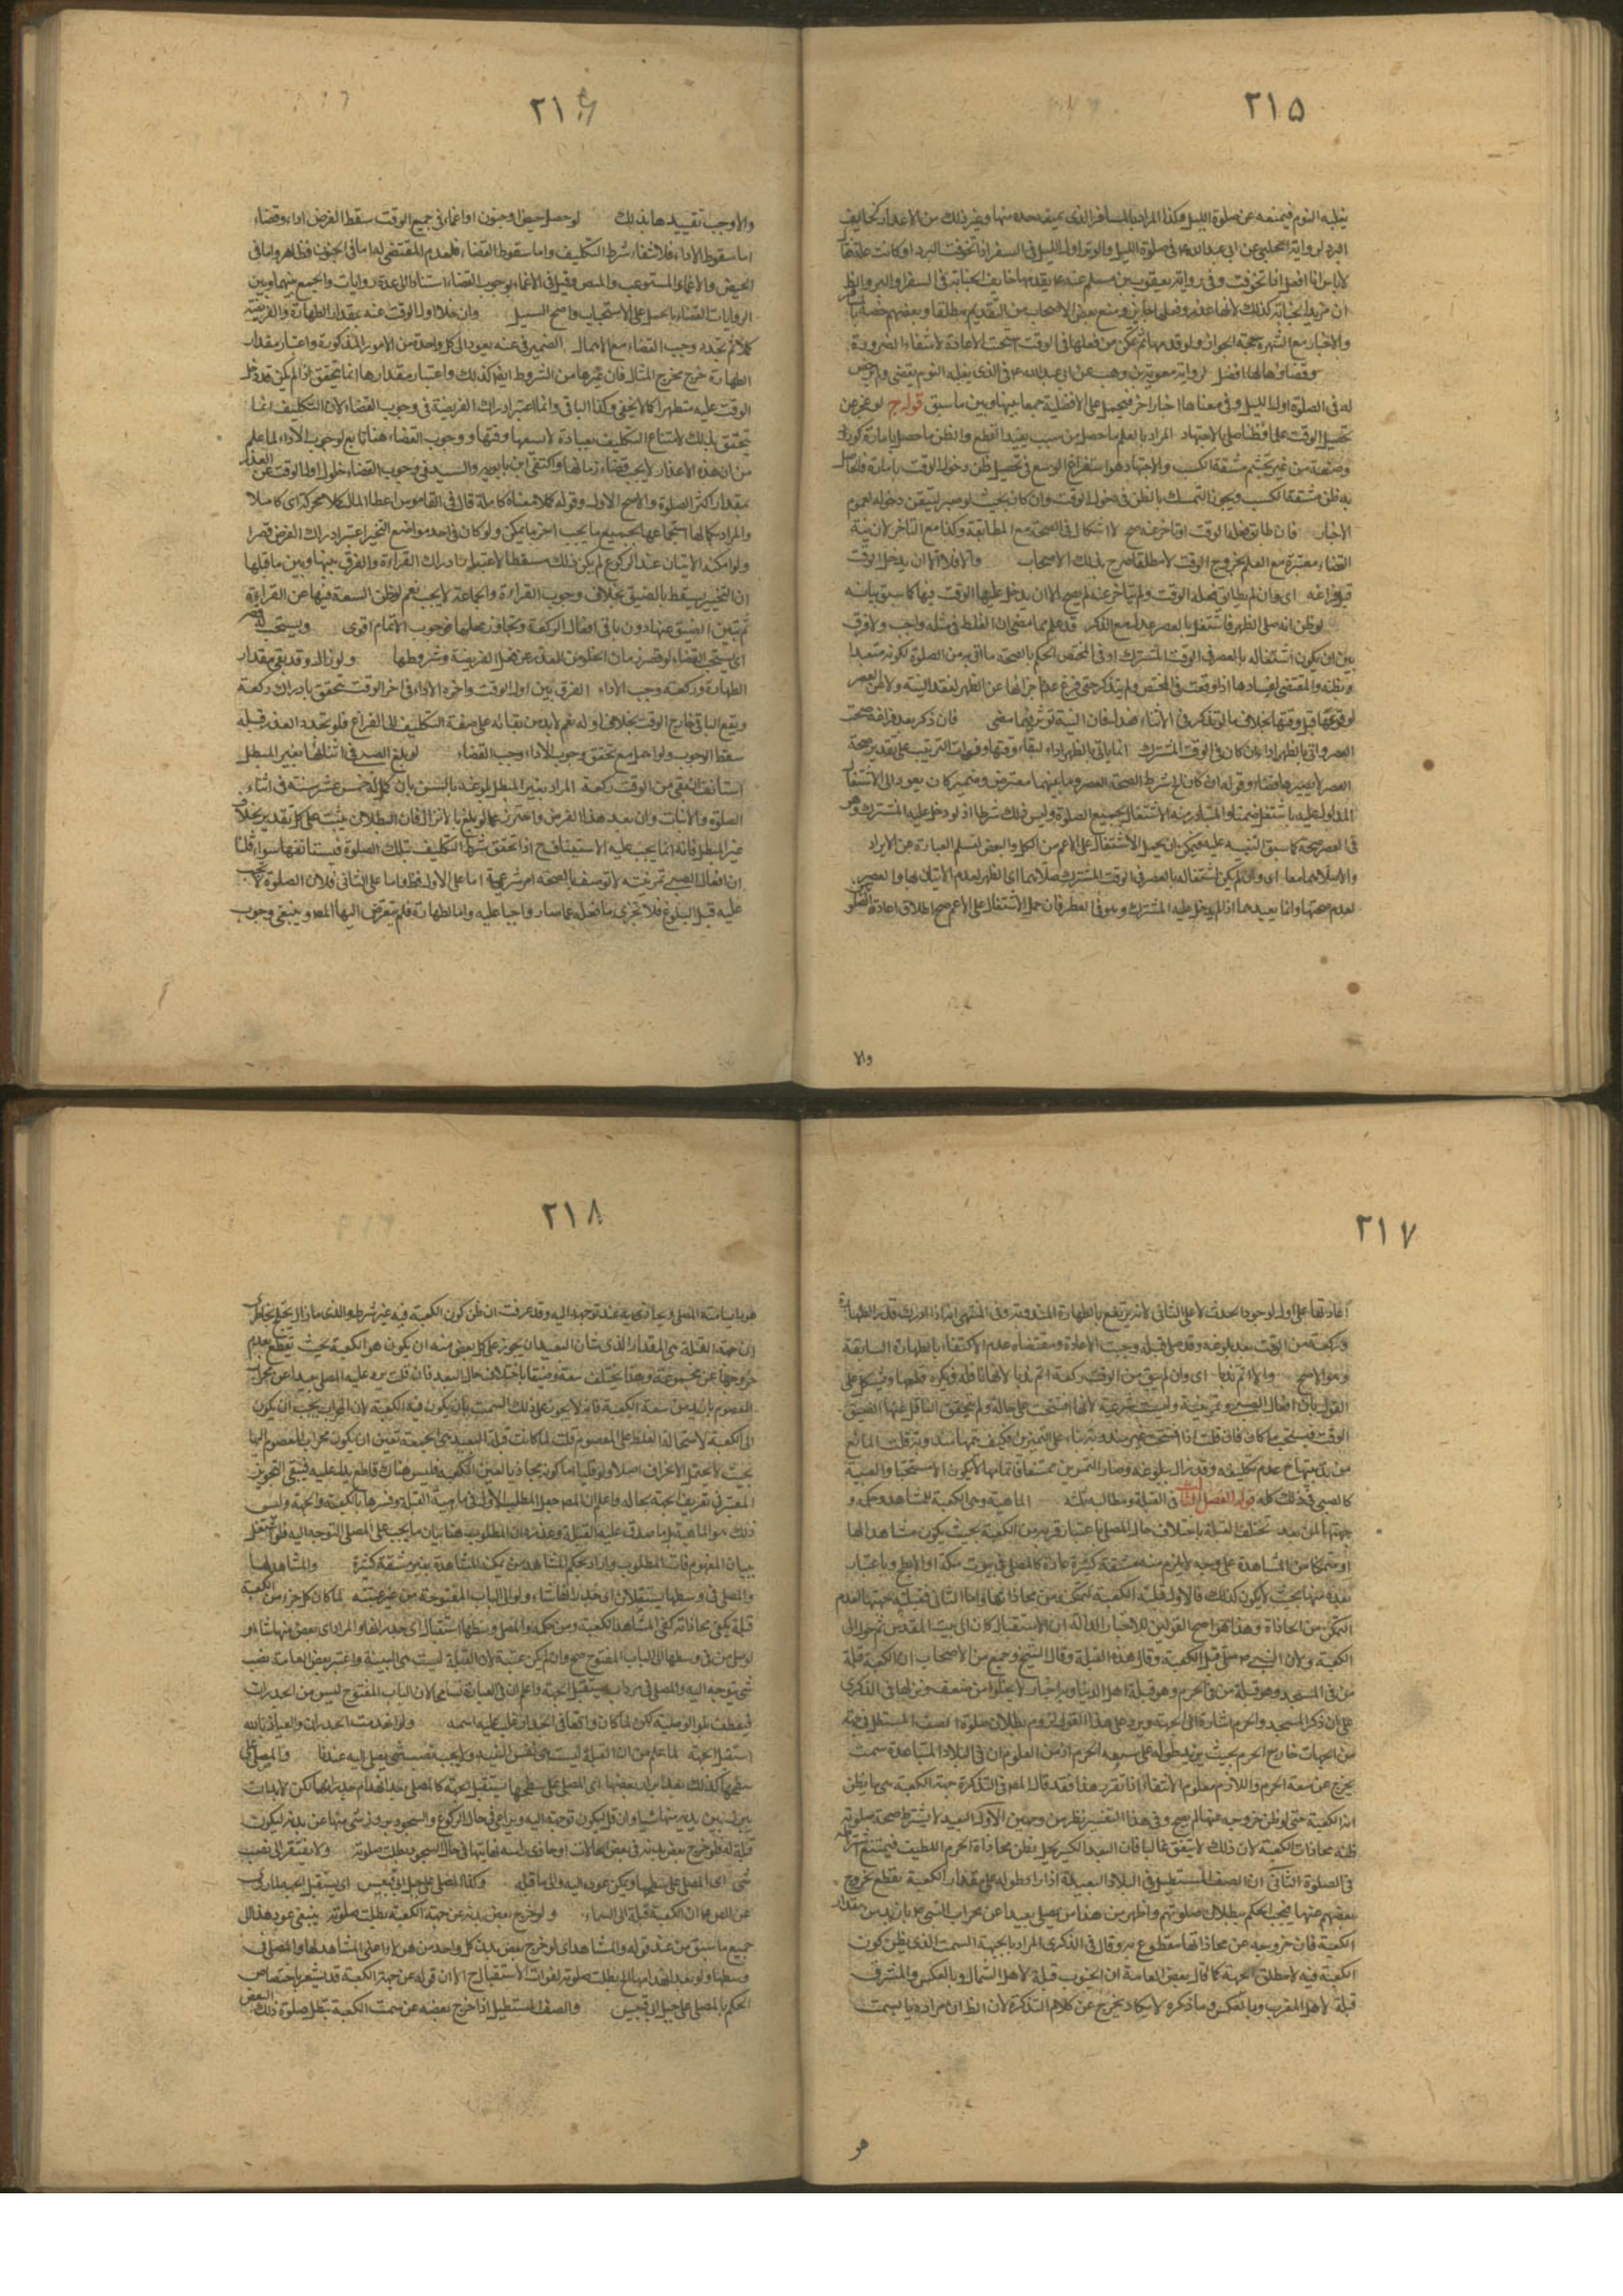 ٢١٥
يغلبه النوم فيمنعه عن صلوة الليل وكذا المراد بالمسافر الذى يمنعه جده منها وغير ذلك من الاعذار كخايف
البرد لرواية الحلبى عن ابى عبدالله ع فى صلوة الليل والوتر اول الليل فى السفر اذا تخوفت البرد او كانت علة فقال
لا باس انا افعل اذا تخوفت وفى رواية يعقوب بن سالم عنه ع يقدمها خايف الجنابة فى السفر او البرد
والاخبار مع الشهرة حجة الجواز ولو قدمها ثم تمكن من فعلها فى الوقت الاعادة لانتفاء الضرورة
وقضاؤها لها افضل لرواية معوية بن وهب عن ابى عبدالله ع فى الذى يغلبه النوم يقضى ولم يرخص
له فى الصلوة اول الليل وفى معناها اخبار اخر فتحمل على الافضلية جمعا بينها وبين ما سبق قوله ج لو عجز عن
تحصيل الوقت علما وظنا صلى بالاجتهاد المراد بالعلم ما حصل من سبب يفيد القطع وبالظن ما حصل بامارة كوراد
وصنعة من غير تجشم مشقة الكسب والاجتهاد هو استفراغ الوسع فى تحصيل ظن دخول الوقت بامارة
به ظن مشقة الكسب ويجوز التمسك بالظن فى دخول الوقت وان كان بحيث لو صبر لتيقن دخوله لعموم
الاخبار فان طابق فعله الوقت او تاخر عنه صح لا اشكال فى الصحة مع المطابقة وكذا مع التاخر لان نية
القضاء معتبرة مع العلم بخروج الوقت لا مطلقا صرح بذلك الاصحاب والا فلا الا ان يدخل الوقت
قبل فراغه اى وان لم يطابق فعله الوقت ولم يتاخر عنه لم يصح الا ان يدخل عليه الوقت فيها كما سبق بيانه
لو ظن انه صلى الظهر فاشتغل بالعصر عدل مع الذكر قد علم مما مضى ان الغلط فى مثله واجب ولا فرق
بين ان يكون اشتغاله بالعصر فى الوقت المشترك او فى المختص الحكم بالصحة ما اتى به من الصلوة لكونه متعبدا
لوقوعها قبل وقتها بخلاف ما لو تذكر فى الاثناء فعدل فان النية تؤثر فيما مضى فان ذكر بعد فراغه صحت
العصر واتى بالظهر اداء ان كان فى الوقت المشترك انما ياتى بالظهر اداء لبقاء وقتها وفوات الترتيب على تقدير صحة
فى العصر صحة كما سبق التنبيه عليه فيمكن ان يحمل الاشتغال على الاعم من الكل والبعض لتسلم العبارة عن الايراد
والا صلاهما معا اى وان لم يكن اشتغاله بالعصر فى الوقت المشترك صلاهما اى الظهر لعدم الاتيان بها والعصر
والا
٢١٦
والاوجب تقييدها بذلك لو حصل حيض او جنون او اغماء فى جميع الوقت سقط الفرض اداء وقضاء
اما سقوط الاداء فلانتفاء شرط التكليف واما سقوط القضاء فلعدم المقتضى له اما فى الجنون فظاهر واما فى
الحيض والاغماء المستوعب وللنص وقيل فى الاغماء بوجوب القضاء استنادا الى عدة روايات والجمع بينهما وبين
الروايات القضاء بالحمل على الاستحباب واضح السبيل وان خلا اول الوقت عنه بمقدار الطهارة والفريضة
كملا ثم تجدد وجب القضاء مع الاهمال الضمير فى عنه يعود الى كل واحدة من الامور المذكورة واعتبار مقدار
الطهارة خرج مخرج المثال فان غيرها من الشروط ايضا كذلك واعتبار مقدارها انما يتحقق اذا لم يكن قد دخل
الوقت عليه متطهرا كما لا يخفى وكذا الباقى وانما اعتبر ادراك الفريضة فى وجوب القضاء لان التكليف انما
يتحقق بذلك لامتناع التكليف بعبادة لا يسعها وقتها ووجوب القضاء هنا تابع لوجوب الاداء لما علم
من ان هذه الاعذار لا يجب قضاء زمانها واكتفى ابن بابويه والسيد فى وجوب القضاء خلو اول الوقت عن العذر
بمقدار اكثر الصلوة والاصح الاول وقوله كملا معناه كاملة قال فى القاموس اعطاه المال كملا محركة اى كاملا
والمراد بكمالها استجماعها لجميع ما يجب اخف ما يمكن ولو كان فى احد مواضع التخيير اعتبر ادراك الفرض قصرا
ان التخيير يسقط بالضيق بخلاف وجوب القراءة والجماعة لا يجب نعم لو ظن السعة فيها عن القراءة
ثم تبين الضيق عنها دون باقى افعال الركعة وتجاوز محلها فوجوب الاتمام اقوى ويستحب لو قصر
اى يستحب القضاء لو قصر زمان الخلو من العذر عن فعل الفريضة وشروطها ولو زال وقد بقى مقدار
الطهارة وركعة وجب الاداء الفرق بين اول الوقت واخره الاداء فى اخر الوقت يتحقق بادراك ركعة
ويقع الباقى خارج الوقت بخلاف اوله نعم لا بد من بقائه على صفة التكليف الى الفراغ فلو تجدد العذر قبله
سقط الوجوب ولو اهمل مع تحقق وجوب الاداء وجب القضاء لو بلغ الصبى فى اثنائها بغير المبطل
استانف ان بقى من الوقت ركعة المراد بغير المبطل بلوغه بالسن بان كمل له خمس عشر سنة فى اثناء
الصلوة والانبات وان بعد هذا الفرض واحترز عما لو بلغ بالانزال فان البطلان يثبت على كل تقدير بخلاف
غير المبطل فانه انما يجب عليه الاستيناف ح اذا تحقق شرط التكليف بتلك الصلوة فيستانفها سواء قلنا
ان افعال الصبى تمرينية لا توصف بالصحة ام شرعية اما على الاول فظ واما على الثانى فلان الصلوة لا تجب
عليه قبل البلوغ فلا تجزى ما فعله عما صار واجبا عليه واما الطهارة فلم يتعرض اليها المص وينبغى وجوب
٢١٧
اعادتها على الاول لوجود الحدث لا على الثانى
وركعة من الوقت بعد بلوغه وقد صلى قبله وجبت الاعادة ومقتضاه عدم الاكتفاء بالطهارة السابقة
وهو الاصح والا اتم ندبا اى وان لم يبق من الوقت ركعة اتم ندبا لانها نافلة فيكره قطعها ويشكل على
القول بان افعال الصبى تمرينية وليست شرعية
كالصبى فى ذلك كله قوله الفصل الثالث فى القبلة ومطالبه ثلثة الماهية وهى الكعبة للمشاهد وحكمه و
جهتها لمن بعد تختلف القبلة باختلاف حال المصلى باعتبار قربه من الكعبة بحيث يكون مشاهدا لها
او متمكنا من المشاهدة على وجه لا يلزم منه مشقة كثيرة عادة كالمصلى فى بيوت مكة او الابطح وباعتبار
بعده عنها بحيث لا يكون كذلك فالاول قبلته الكعبة لتمكنه من محاذاتها واما الثانى فقبلته جهتها لعدم
التمكن من المحاذاة وهذا هو اصح القولين للاخبار الدالة ان الاستقبال كان الى بيت المقدس ثم حول الى
الكعبة ولان النبى ص صلى قبل الكعبة وقال هذه القبلة وقال الشيخ وجمع من الاصحاب ان الكعبة قبلة
من فى المسجد وهو قبلة من فى الحرم وهو قبلة اهل الدنيا وبه اخبار لا يخلوا من ضعف ونزلها فى الذكرى
على ان ذكر المسجد والحرم اشارة الى الجهة ويرد على هذا القول لزوم بطلان صلوة الصف المستطيل فى جهة
من الجهات خارج الحرم بحيث يزيد طوله على سعة الحرم اذ من المعلوم ان فى البلاد المتباعدة سمت
يخرج عن سعة الحرم واللازم معلوم الانتفاء اذا تقرر هذا فقد قال المص فى التذكرة جهة الكعبة هى ما يظن
انه الكعبة حتى لو ظن خروجه عنها لم يصح وفى هذا التفسير نظر من وجهين الاول ان البعيد لا يشترط صحة صلوته
ظنه محاذات الكعبة لان ذلك لا يتفق غالبا فان البعد الكثير يخل بظن محاذاة الحرم اللطيف فيمتنع اشتراطه
فى الصلوة الثانى ان الصف المستطيل فى البلاد البعيدة اذا زاد طوله على مقدار الكعبة يقطع بخروج
بعضهم عنها فيجب الحكم ببطلان صلوتهم واظهر من هذا من يصلى بعيدا عن محراب النبى ص بازيد من مقدار
الكعبة فان خروجه عن محاذاتها مقطوع به وقال فى الذكرى المراد بالجهة السمت الذى يظن كون
الكعبة فيه لا مطلق الجهة كما قال بعض العامة ان الجنوب قبلة لاهل الشمال وبالعكس والمشرق
قبلة لاهل المغرب وبالعكس وما ذكره لا يكاد يخرج عن كلام التذكرة لان الظ ان مراده بالسمت
هو
٢١٨
هو ما يسامته المصلى ويحاذيه عند توجهه اليه وقد عرفت ان ظن كون الكعبة فيه غير شرط والذى ما زال يختلج بخاطرى
ان جهة القبلة هى المقدار الذى شان البعيد ان يجوز على كل بعض منه ان يكون هو الكعبة بحيث يقطع بعدم
خروجها عن مجموعه وهذا يختلف سعة وضيقا باختلاف حال البعد فان قلت يرد عليه المصلى بعيدا عن محراب
المعصوم بازيد من سعة الكعبة فانه لا يجوز على ذلك السمت بان يكون فيه الكعبة لان المحراب يجب ان يكون
الى الكعبة لاستحالة الغلط على المعصوم قلت لما كانت قبلة البعيد هى الجهة تعين ان يكون محراب المعصوم اليها
بحيث لا يحتمل الانحراف اصلا ولو قليلا اما كونه محاذيا لعين الكعبة فليس هناك قاطع يدل عليه فيبقى التجويز
المعتبر فى تعريف الجهة بحاله واعلم ان المص جعل المطلب الاول فى ماهية القبلة وفسرها بالكعبة والجهة وليس
ذلك هو الماهية بل ما صدق عليه القبلة وعذره ان المطلوب هنا بيان ما يجب على المصلى التوجه اليه فلو اشتغل
ببيان المفهوم فات المطلوب واراد بحكم المشاهد من يمكنه المشاهدة بغير مشقة كثيرة والمشاهد لها
والمصلى فى وسطها يستقبلان اى جدرانها شاءا ولو الى الباب المفتوحة من غير عتبة لما كان كل جزء من الكعبة
قبلة يكفى محاذاته كفى المشاهد للكعبة ومن حكمه والمصلى وسطها استقبال اى جدرانها والمراد اى بعض منها شاء ولو
لو صلى من فى وسطها الى الباب المفتوح صح وان لم يكن عتبة لان القبلة ليست هى البنية واعتبر بعض العامة نصب
شى يتوجه اليه والمصلى فى سرداب يستقبل الجهة واعلم ان فى العبارة تسامحا لان الباب المفتوح ليس من الجدران
فيعطف بلو الوصلية لكن لما كان واقعا فى الجدار غلب عليه اسمه ولو انهدمت الجدران والعياذ بالله
استقبل الجهة لما علم من ان القبلة ليست هى نفس البنية ولا يجب نصب شى يصلى اليه عندنا والمصلى على
سطحها كذلك بعد ابراز بعضها اى المصلى على سطحها يستقبل الجهة كالمصلى بعد انهدام جدرانها لكن لا بد ان
يبرز بين يديه منها شيا وان قل ليكون توجهه اليه ويراعى فى حال الركوع والسجود بروز شى منها عن بدنه ليكون
قبلة له فلو خرج بعض بدنه فى بعض الحالات او حاذى راسه نهايتها فى حال السجود بطلت صلوته ولا يفتقر الى نصب
شى اى المصلى على سطحها ويمكن عوده اليه والى ما قبله وكذا المصلى على جبل ابى قبيس اى يستقبل الجهة لما روى
عن الص ع ان الكعبة قبلة الى السماء ولو خرج بعض بدنه عن جهة الكعبة بطلت صلوته ينبغى عود هذا الى
جميع ما سبق من عند قوله والمشاهد اى لو خرج بعض بدن كل واحد من هؤلاء اعنى المشاهد لها والمصلى فى
وسطها ولو بعد انهدامها الخ بطلت صلوته لفوات الاستقبال ح الا ان قوله عن جهة الكعبة قد يشعر باختصاص
الحكم بالمصلى على جبل ابى قبيس والصف المستطيل اذا خرج بعضه عن سمت الكعبة تبطل صلوة ذلك البعض